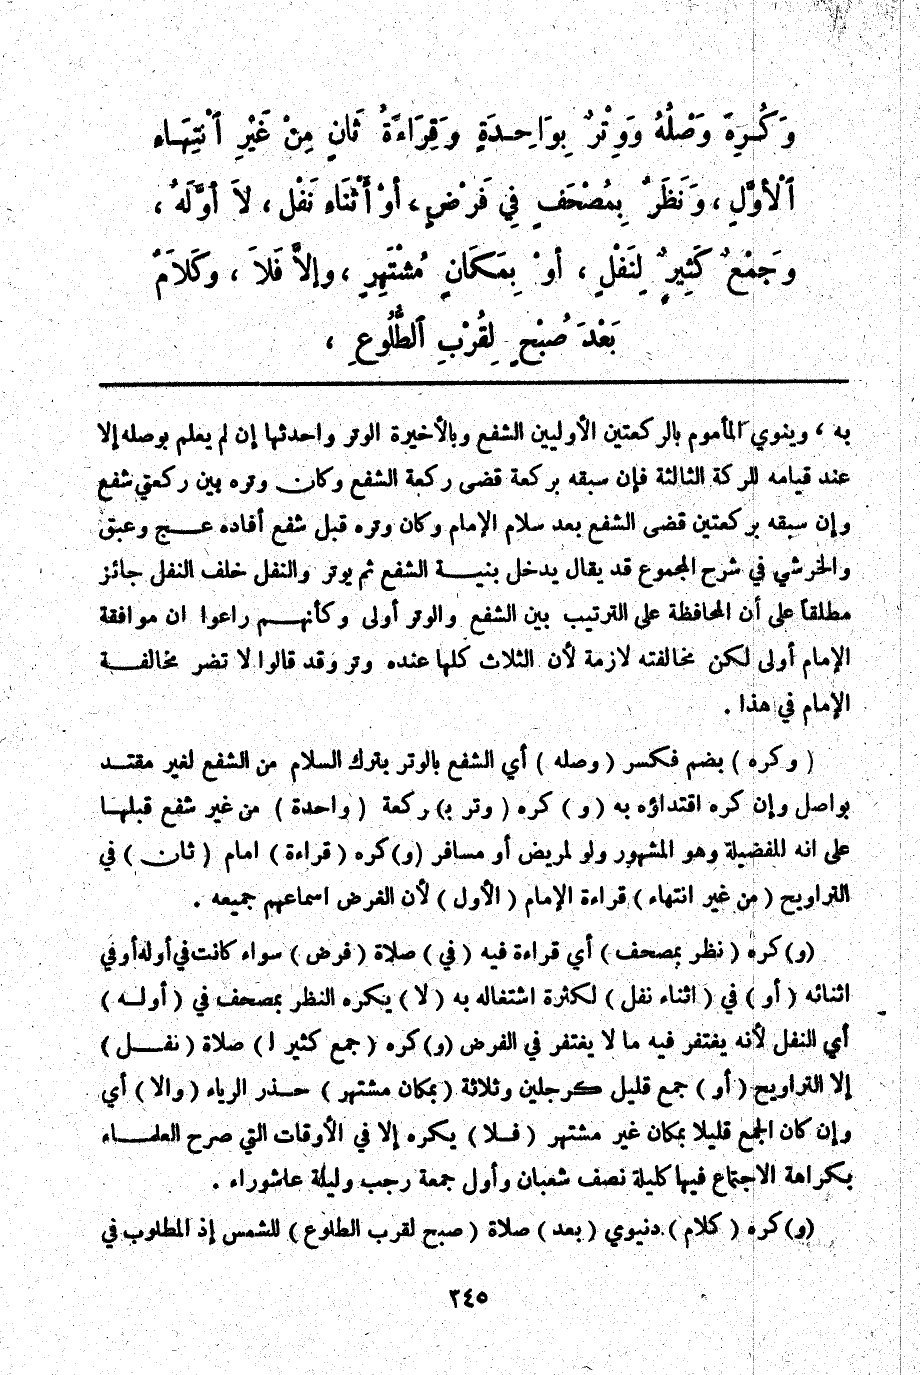 وَكُـرِهَ وَصْلُهُ وَوِتْرٌ بِوَاحِـدَةٍ وَقِرَاءَةُ ثَانٍ مِنْ غَيْرِ ٱنْتِهَاءِ
ٱلْأَوَّلِ ، وَنَظَرٌ بِمُصْحَفٍ فِي فَرْضٍ ، أَوْ أَثْنَاءِ نَفْلٍ ، لَا أَوَّلَهُ ،
وَجَمْعٌ كَثِيرٌ لِنَفْلٍ ، أَوْ بِمَكَانٍ مُشْتَهِرٍ ، وإلاَّ فَلَا ، وكَلَامٌ
بَعْدَ صُبْحٍ لِقُرْبِ ٱلطُّلُوعِ ،
به ، وينوي المأموم بالركعتين الأوليين الشفع وبالأخيرة الوتر واحدثها إن لم يعلم بوصله إلا
عند قيامه للركة الثالثة فإن سبقه بركعة قضى ركعة الشفع وكان وتره بين ركعتي شفع
وإن سبقه بركعتين قضى الشفع بعد سلام الإمام وكان وتره قبل شفع أفاده عـج وعبق
والخرشي في شرح المجموع قد يقال يدخل بنيـة الشفع ثم يوتر والنفل خلف النفل جائز
مطلقاً على أن المحافظة على الترتيب بين الشفع والوتر أولى وكأنهـم راعوا ان موافقة
الإمام أولى لكن مخالفته لازمة لأن الثلاث كلها عنده وتر وقد قالوا لا تضر مخالفـة
الإمام في هذا .
( وكره ) بضم فكسر ( وصله ) أي الشفع بالوتر بترك السلام من الشفع لغير مقتـد
بواصل وإن كره اقتداؤه به ( و ) كره ( وتر بـ) ركعة ( واحدة ) من غير شفع قبلهـا
على انه للفضيلة وهو المشهور ولو لمريض أو مسافر (و) كره ( قراءة ) امام ( ثان ) في
التراويح ( من غير انتهاء ) قراءة الإمام ( الأول ) لأن الغرض اسماعهم جميعه .
(و) كره ( نظر بمصحف ) أي قراءة فيه ( في ) صلاة ( فرض ) سواء كانت في أوله أو في
اثنائه ( أو ) في ( اثناء نفل ) لكثرة اشتغاله به ( لا ) يكره النظر بمصحف في ( أولـه )
أي النفل لأنه يغتفر فيه ما لا يغتفر في الفرض (و) كره ( جمع كثير لـ) صلاة ( نفـل )
إلا التراويح ( أو ) جمع قليل كرجلين وثلاثة ( بمكان مشتهر ) حـذر الرياء ( والا ) أي
وإن كان الجمع قليلا بمكان غير مشتهر ( فـلا ) يكره إلا في الأوقات التي صرح العلمـاء
بكراهة الاجتماع فيها كليلة نصف شعبان وأول جمعة رجب وليلة عاشوراء .
(و) كره ( كلام ) دنيوي ( بعد ) صلاة ( صبح لقرب الطلوع ) للشمس إذ المطلوب في
٣٤٥